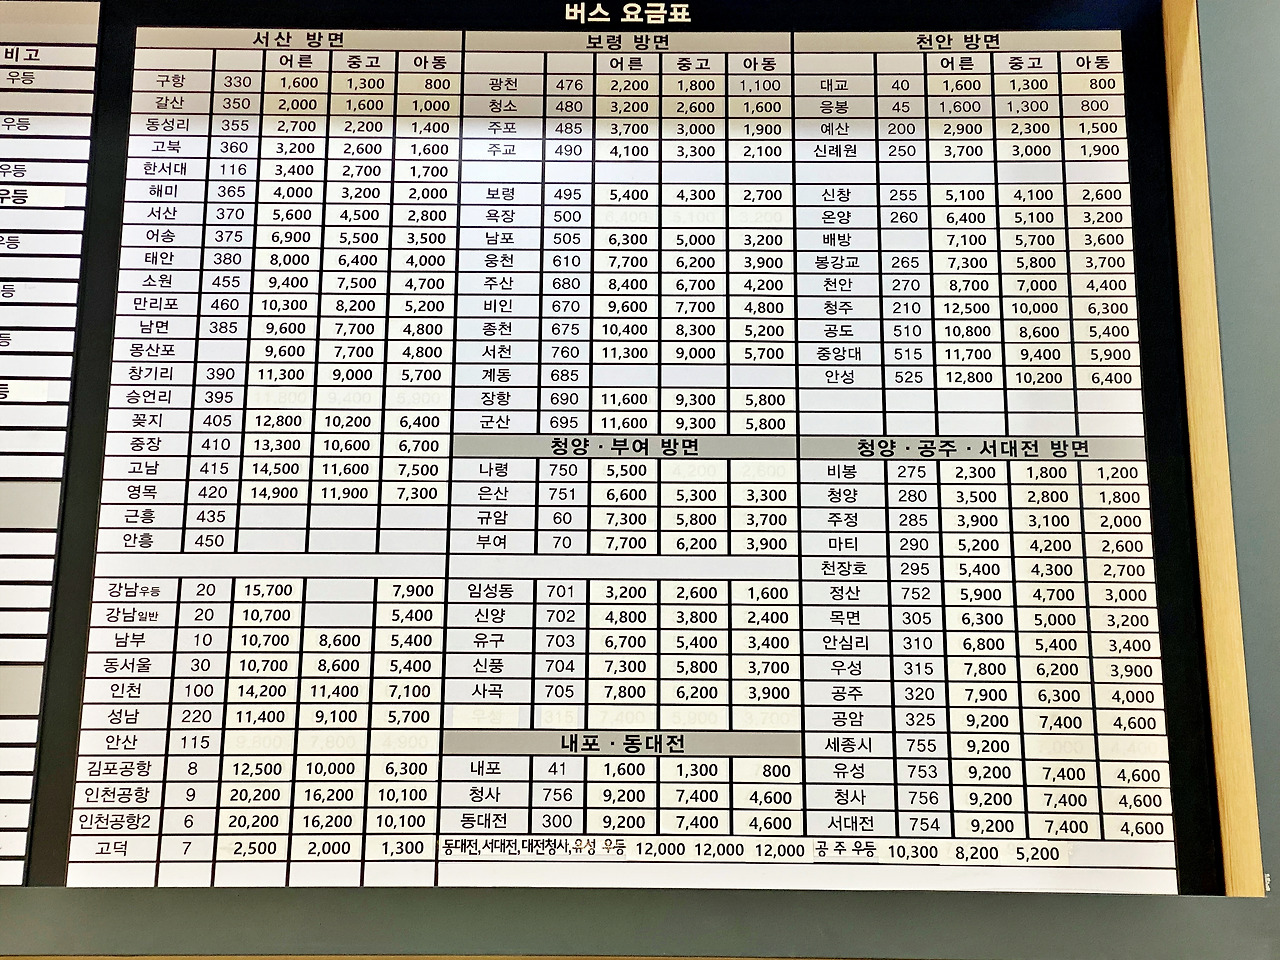 버스 요금표
비고
우등
우등
우등
우등
우등
등
등
등
서산 방면
어른 중고 아동
구항 330 1,600 1,300 800
갈산 350 2,000 1,600 1,000
동성리 355 2,700 2,200 1,400
고북 360 3,200 2,600 1,600
한서대 116 3,400 2,700 1,700
해미 365 4,000 3,200 2,000
서산 370 5,600 4,500 2,800
어송 375 6,900 5,500 3,500
태안 380 8,000 6,400 4,000
소원 455 9,400 7,500 4,700
만리포 460 10,300 8,200 5,200
남면 385 9,600 7,700 4,800
몽산포 9,600 7,700 4,800
창기리 390 11,300 9,000 5,700
승언리 395
꽂지 405 12,800 10,200 6,400
중장 410 13,300 10,600 6,700
고남 415 14,500 11,600 7,500
영목 420 14,900 11,900 7,300
근흥 435
안흥 450
강남우등 20 15,700 7,900
강남일반 20 10,700 5,400
남부 10 10,700 8,600 5,400
동서울 30 10,700 8,600 5,400
인천 100 14,200 11,400 7,100
성남 220 11,400 9,100 5,700
안산 115
김포공항 8 12,500 10,000 6,300
인천공항 9 20,200 16,200 10,100
인천공항2 6 20,200 16,200 10,100
고덕 7 2,500 2,000 1,300
보령 방면
어른 중고 아동
광천 476 2,200 1,800 1,100
청소 480 3,200 2,600 1,600
주포 485 3,700 3,000 1,900
주교 490 4,100 3,300 2,100
보령 495 5,400 4,300 2,700
욕장 500
남포 505 6,300 5,000 3,200
웅천 610 7,700 6,200 3,900
주산 680 8,400 6,700 4,200
비인 670 9,600 7,700 4,800
종천 675 10,400 8,300 5,200
서천 760 11,300 9,000 5,700
계동 685
장항 690 11,600 9,300 5,800
군산 695 11,600 9,300 5,800
청양 · 부여 방면
나령 750 5,500
은산 751 6,600 5,300 3,300
규암 60 7,300 5,800 3,700
부여 70 7,700 6,200 3,900
임성동 701 3,200 2,600 1,600
신양 702 4,800 3,800 2,400
유구 703 6,700 5,400 3,400
신풍 704 7,300 5,800 3,700
사곡 705 7,800 6,200 3,900
내포 · 동대전
내포 41 1,600 1,300 800
청사 756 9,200 7,400 4,600
동대전 300 9,200 7,400 4,600
천안 방면
어른 중고 아동
대교 40 1,600 1,300 800
응봉 45 1,600 1,300 800
예산 200 2,900 2,300 1,500
신례원 250 3,700 3,000 1,900
신창 255 5,100 4,100 2,600
온양 260 6,400 5,100 3,200
배방 7,100 5,700 3,600
봉강교 265 7,300 5,800 3,700
천안 270 8,700 7,000 4,400
청주 210 12,500 10,000 6,300
공도 510 10,800 8,600 5,400
중앙대 515 11,700 9,400 5,900
안성 525 12,800 10,200 6,400
청양 · 공주 · 서대전 방면
비봉 275 2,300 1,800 1,200
청양 280 3,500 2,800 1,800
주정 285 3,900 3,100 2,000
마티 290 5,200 4,200 2,600
천장호 295 5,400 4,300 2,700
정산 752 5,900 4,700 3,000
목면 305 6,300 5,000 3,200
안심리 310 6,800 5,400 3,400
우성 315 7,800 6,200 3,900
공주 320 7,900 6,300 4,000
공암 325 9,200 7,400 4,600
세종시 755 9,200
유성 753 9,200 7,400 4,600
청사 756 9,200 7,400 4,600
서대전 754 9,200 7,400 4,600
동대전,서대전,대전청사,유성 우등 12,000 12,000 12,000 공 주 우등 10,300 8,200 5,200